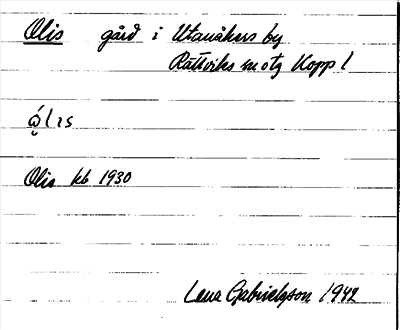 Olis gård i Utanåkers by
Rättviks sn o tg Kopp l
ó̤lıs
Olis kb 1930
Lena Gabrielsson 1942